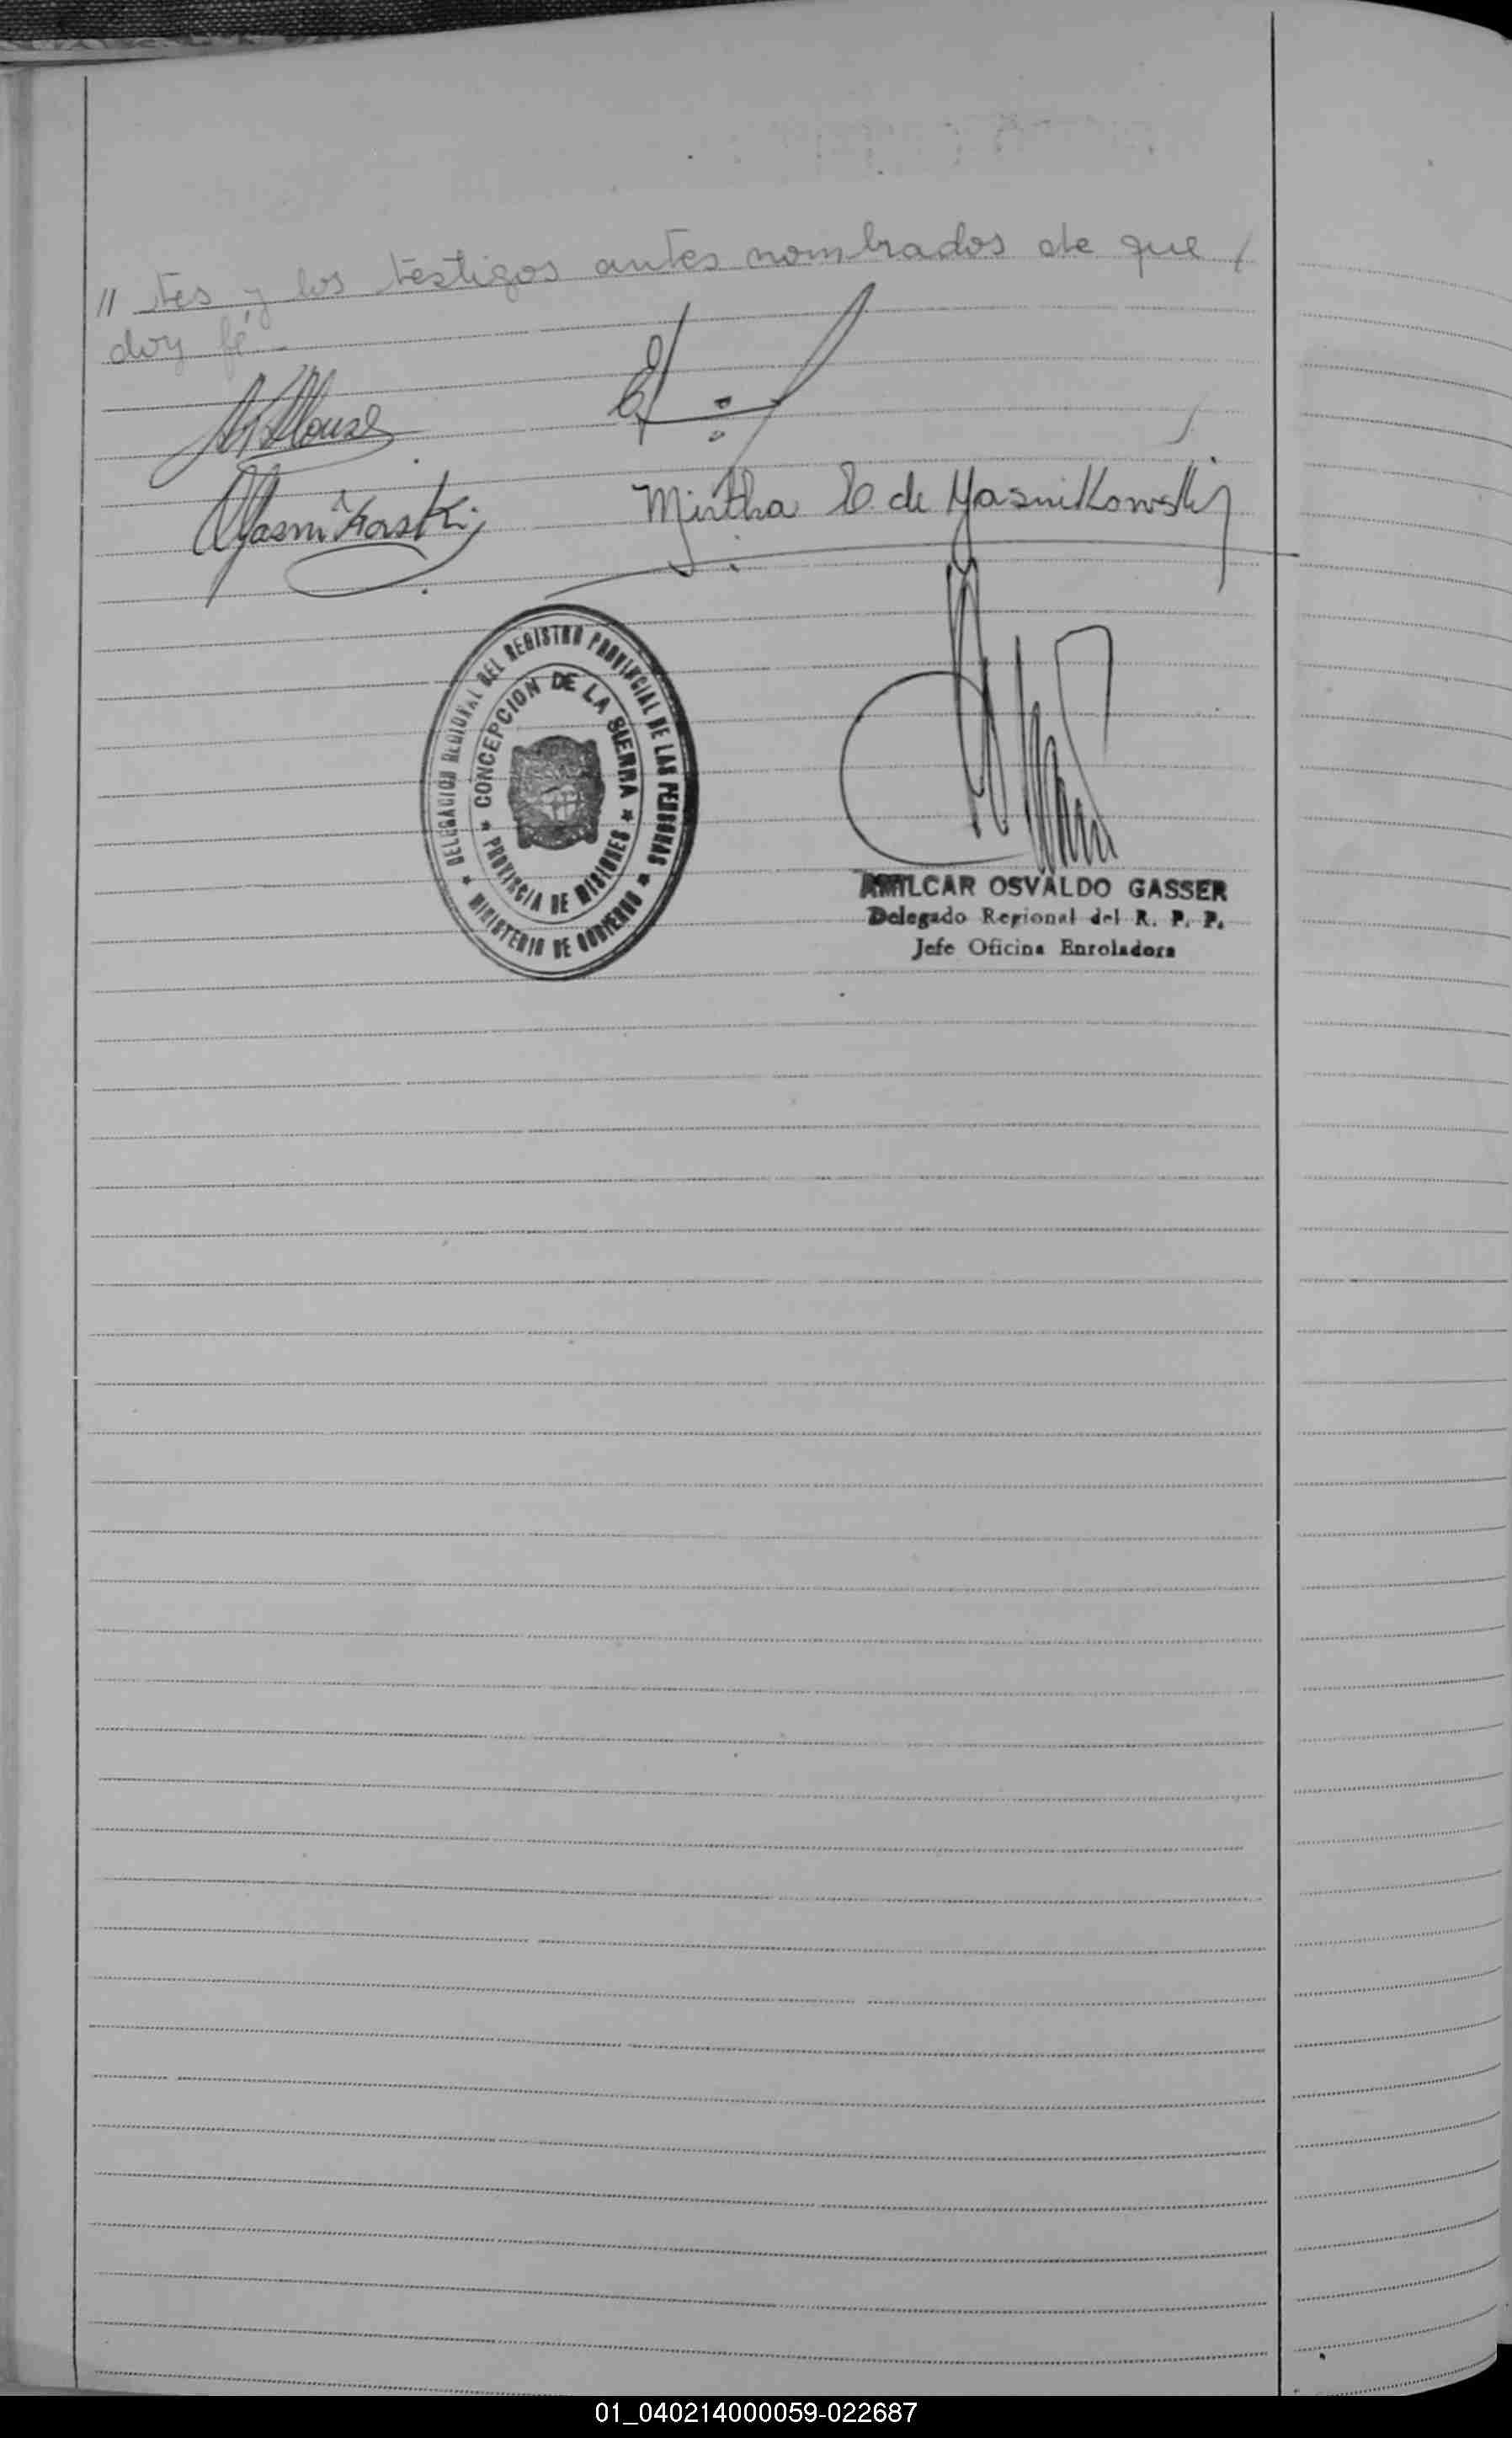 // tes y los testigos antes nombrados de que /
doy fé.-
Mirtha E. de Yasnikowski
DELEGACION REGIONAL DEL REGISTRO PROVINCIAL DE LAS PERSONAS
★ MINISTERIO DE GOBIERNO ★
★ CONCEPCION DE LA SIERRA ★
PROVINCIA DE MISIONES
AMILCAR OSVALDO GASSER
Delegado Regional del R. P. P.
Jefe Oficina Enroladora
01_040214000059-022687